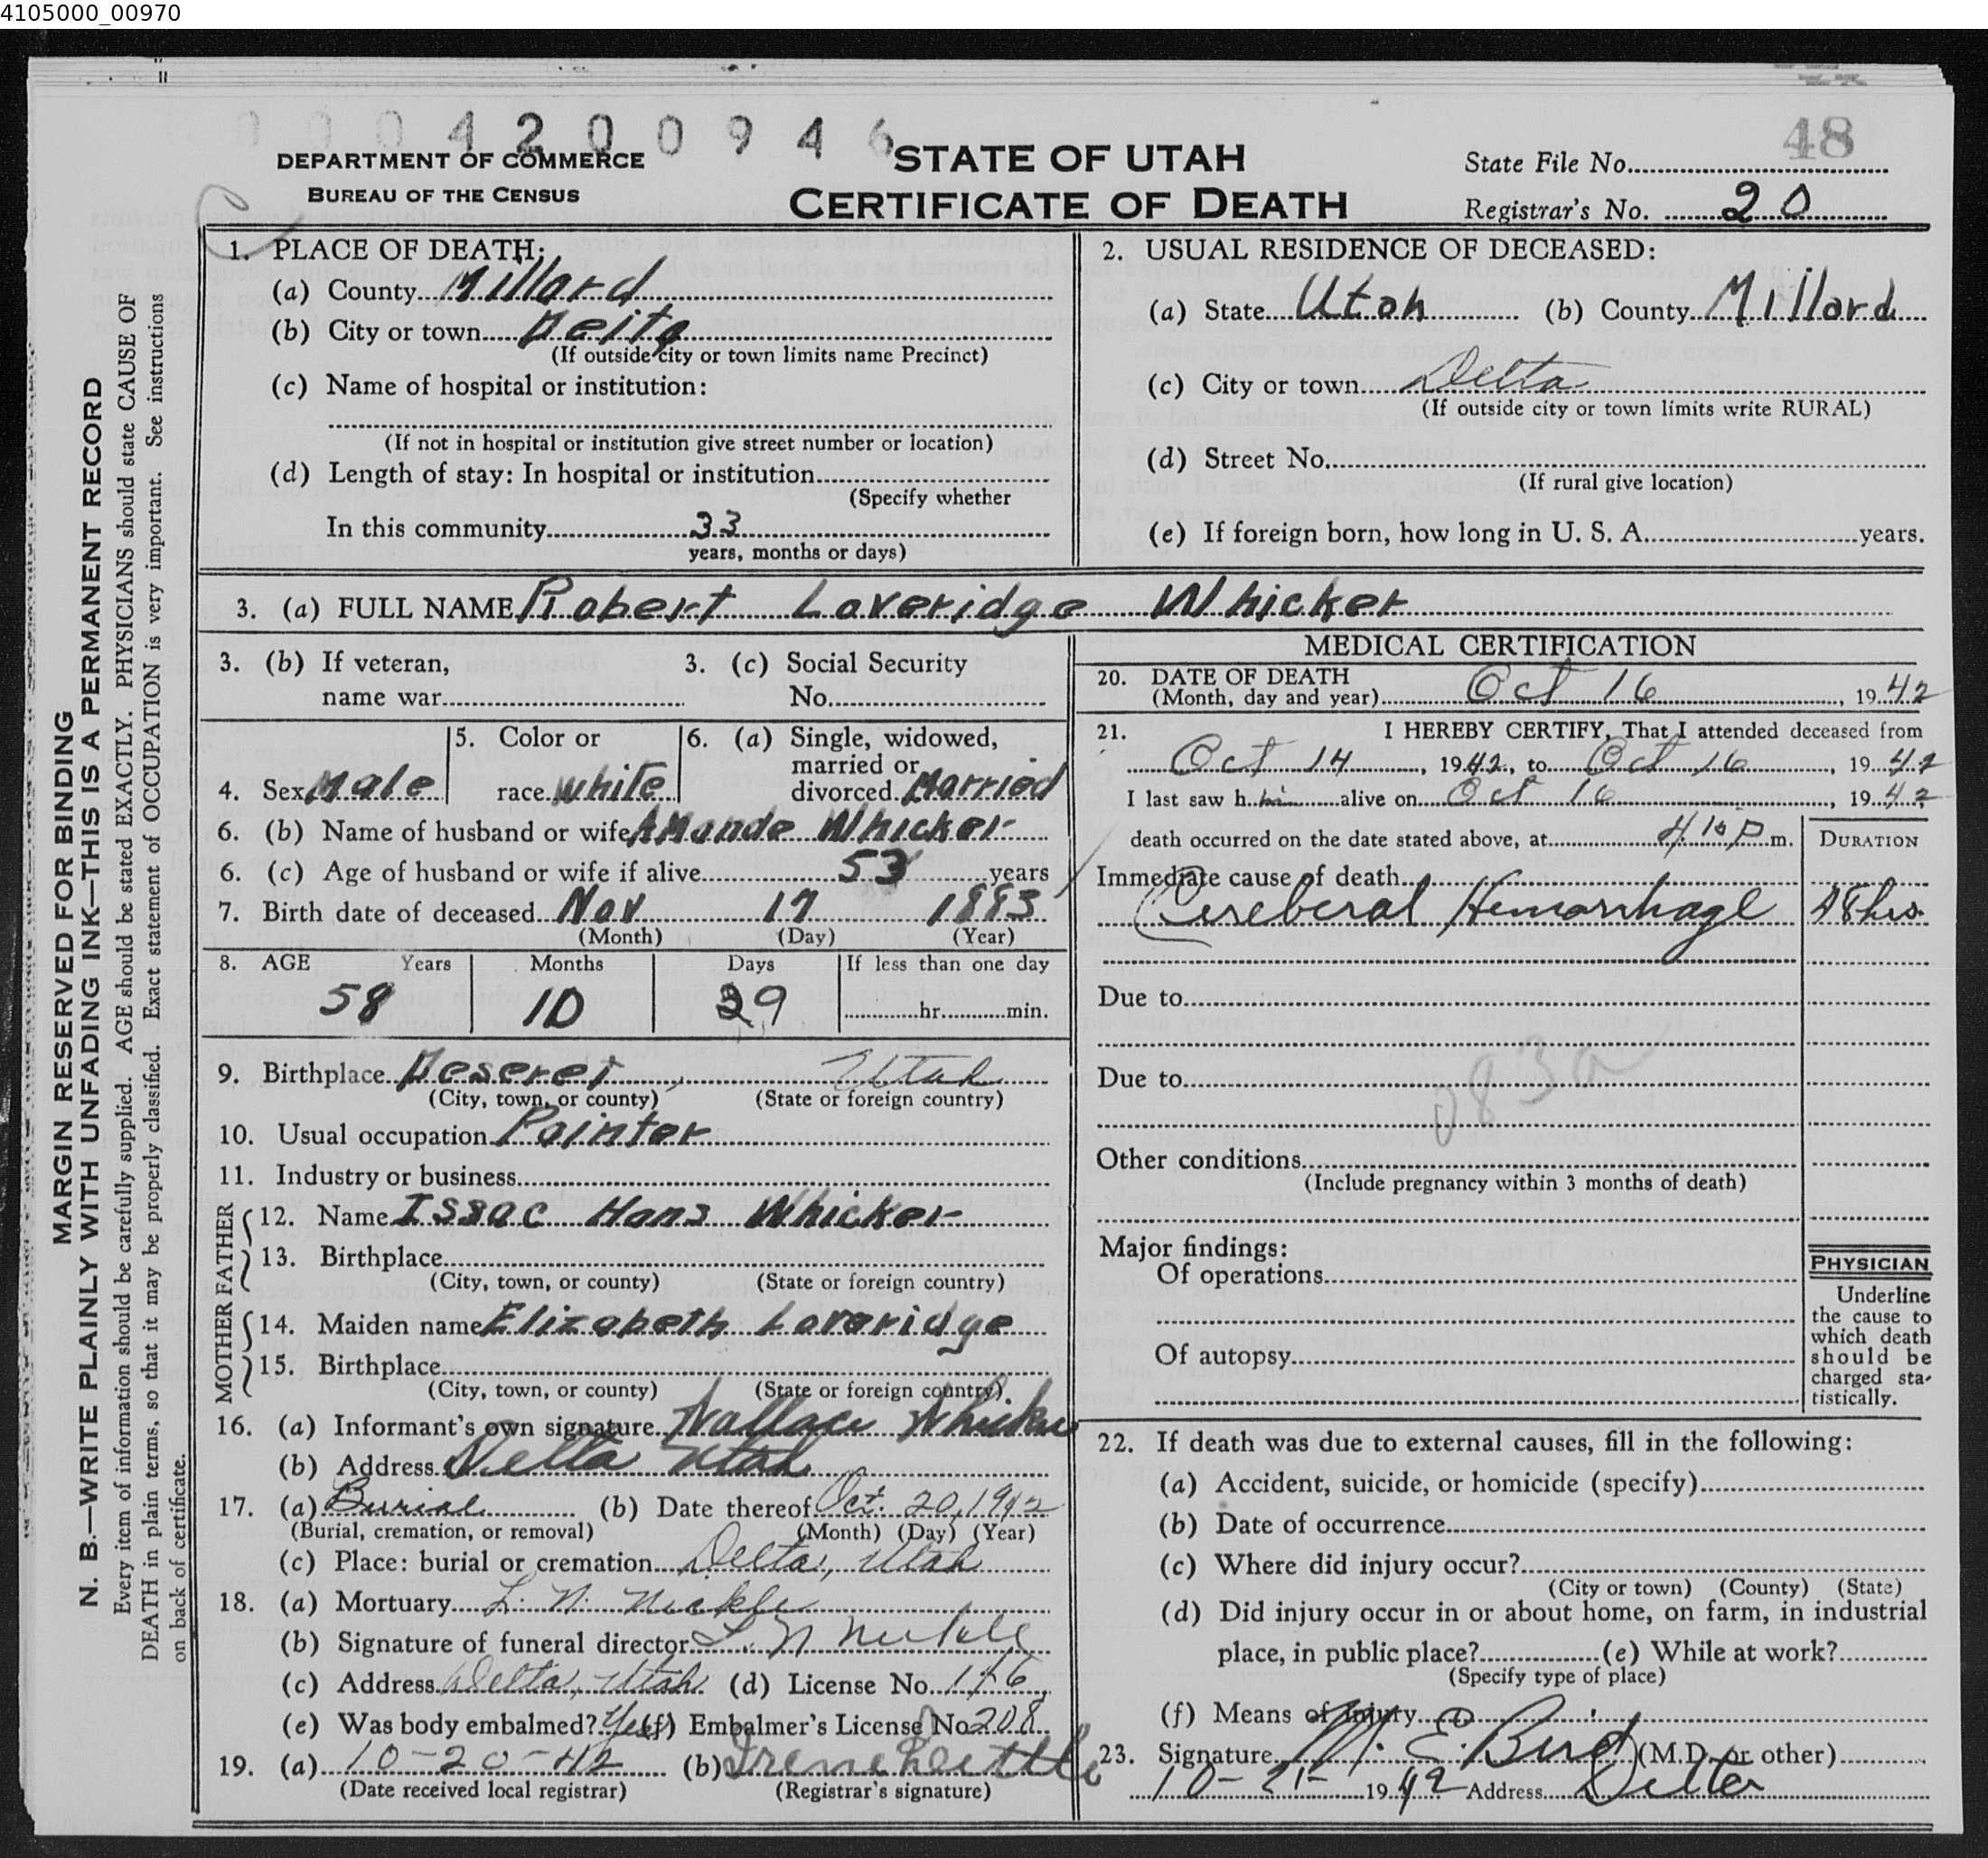 4105000_00970
0004200946
48
DEPARTMENT OF COMMERCE
BUREAU OF THE CENSUS
STATE OF UTAH
CERTIFICATE OF DEATH
State File No.
Registrar's No. 20
MARGIN RESERVED FOR BINDING
N. B.—WRITE PLAINLY WITH UNFADING INK—THIS IS A PERMANENT RECORD
Every item of information should be carefully supplied. AGE should be stated EXACTLY. PHYSICIANS should state CAUSE OF
DEATH in plain terms, so that it may be properly classified. Exact statement of OCCUPATION is very important. See instructions
on back of certificate.
1. PLACE OF DEATH:
(a) County Millard
(b) City or town Delta
(If outside city or town limits name Precinct)
(c) Name of hospital or institution:
(If not in hospital or institution give street number or location)
(d) Length of stay: In hospital or institution
(Specify whether
In this community 33
years, months or days)
2. USUAL RESIDENCE OF DECEASED:
(a) State Utah (b) County Millard
(c) City or town Delta
(If outside city or town limits write RURAL)
(d) Street No.
(If rural give location)
(e) If foreign born, how long in U. S. A. years.
3. (a) FULL NAME Robert Loveridge Whicker
3. (b) If veteran,
name war
3. (c) Social Security
No.
4. Sex Male
5. Color or
race White
6. (a) Single, widowed,
married or
divorced Married
6. (b) Name of husband or wife Amanda Whicker
6. (c) Age of husband or wife if alive 53 years
7. Birth date of deceased Nov 17 1883
(Month) (Day) (Year)
8. AGE Years Months Days If less than one day
58 10 29 hr. min.
9. Birthplace Deseret, Utah
(City, town, or county) (State or foreign country)
10. Usual occupation Painter
11. Industry or business
FATHER
12. Name Issac Hans Whicker
13. Birthplace
(City, town, or county) (State or foreign country)
MOTHER
14. Maiden name Elizabeth Loveridge
15. Birthplace
(City, town, or county) (State or foreign country)
16. (a) Informant's own signature Wallace Whicker
(b) Address Delta Utah
17. (a) Burial (b) Date thereof Oct. 20, 1942
(Burial, cremation, or removal) (Month) (Day) (Year)
(c) Place: burial or cremation Delta, Utah
18. (a) Mortuary L. N. Nickle
(b) Signature of funeral director L N Nickle
(c) Address Delta, Utah (d) License No.
(e) Was body embalmed? Yes (f) Embalmer's License No. 208
19. (a) 10-20-42 (b) Irene
(Date received local registrar) (Registrar's signature)
MEDICAL CERTIFICATION
20. DATE OF DEATH
(Month, day and year) Oct 16, 1942
21. I HEREBY CERTIFY, That I attended deceased from
Oct 14, 1942, to Oct 16, 1942
I last saw him alive on Oct 16, 1942
death occurred on the date stated above, at 4 10 P m.
DURATION
Immediate cause of death
Cereberal Hemorrhage 48 hrs.
Due to
Due to
083a
Other conditions
(Include pregnancy within 3 months of death)
Major findings:
Of operations
Of autopsy
PHYSICIAN
Underline
the cause to
which death
should be
charged sta-
tistically.
22. If death was due to external causes, fill in the following:
(a) Accident, suicide, or homicide (specify)
(b) Date of occurrence
(c) Where did injury occur?
(City or town) (County) (State)
(d) Did injury occur in or about home, on farm, in industrial
place, in public place? (e) While at work?
(Specify type of place)
(f) Means of injury
23. Signature M. E. Bird (M.D. or other)
10- 1942 Address Delta